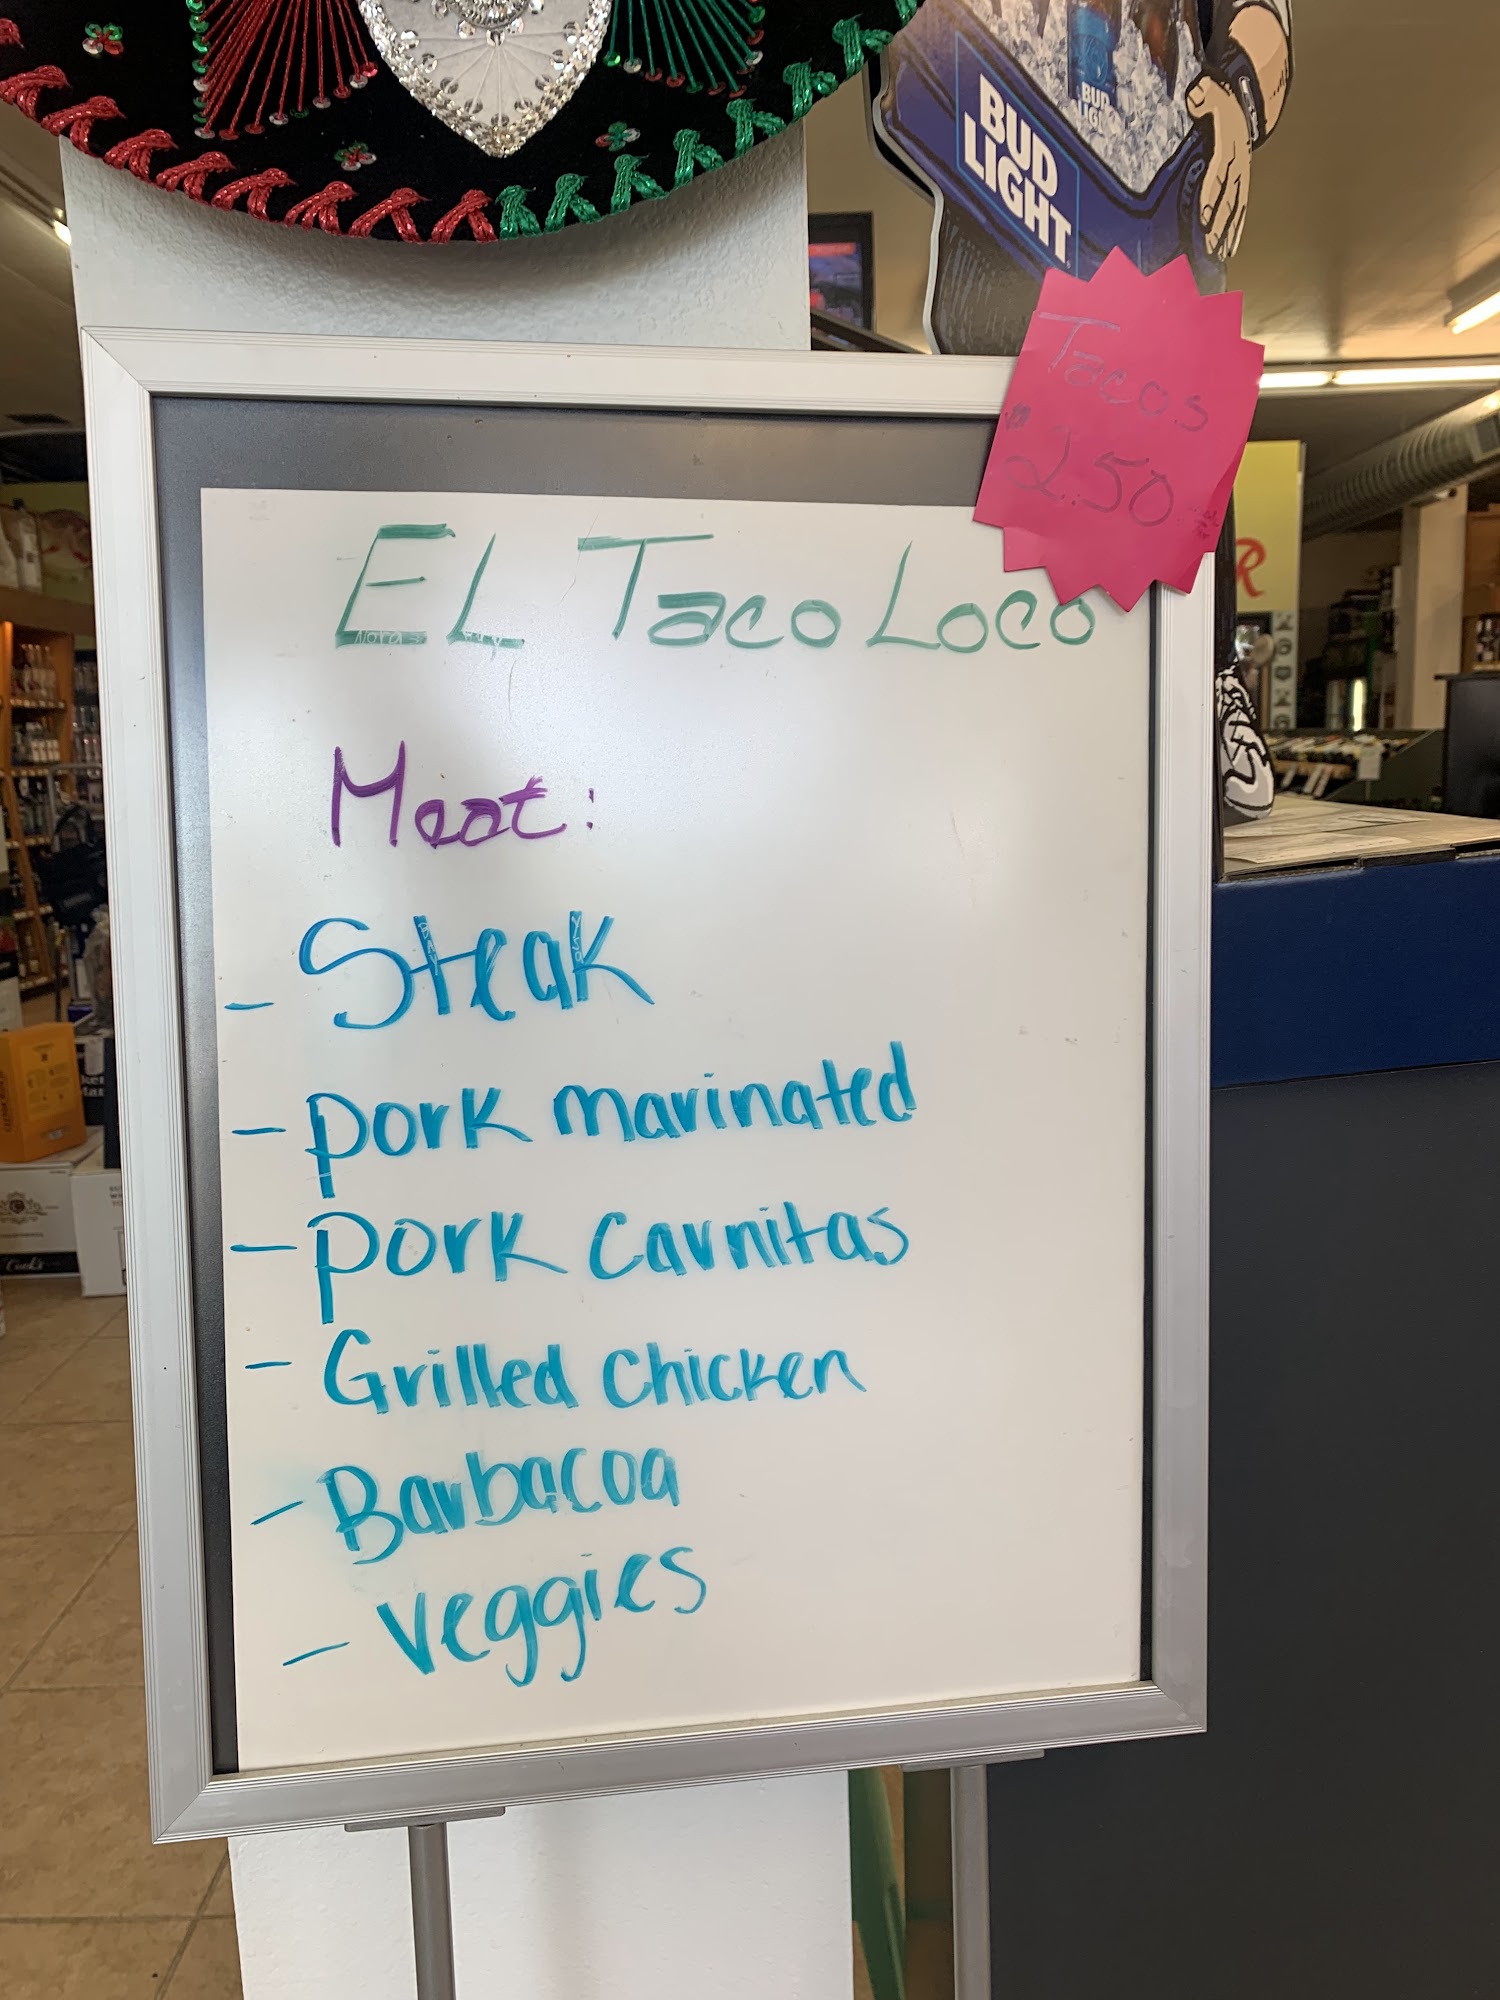 BUD
LIGHT
BUD
LIGHT
Tacos
$2.50
EL Taco Loco
Meat:
- Steak
- Pork marinated
- Pork Carnitas
- Grilled chicken
- Barbacoa
- Veggies
R
Cook's